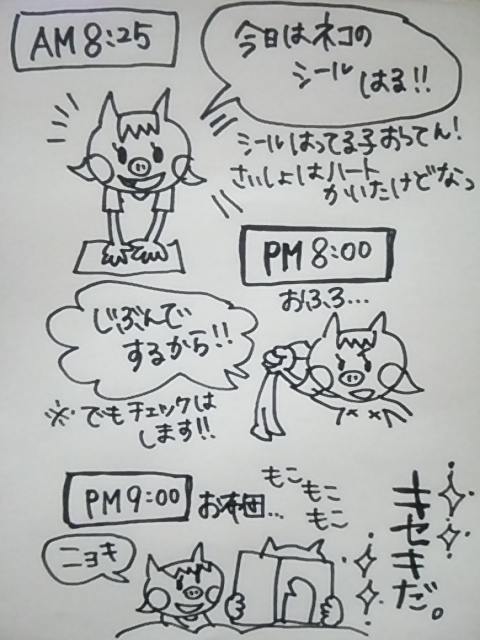 AM 8:25
今日はネコの
シール
はる!!
シールはってる子おってん!
さいしょはハート
かいたけどなっ
PM 8:00
おふろ…
じぶんで
するから!!
※でもチェックは
します!!
PM 9:00
お布団…
もこ
もこ
もこ
ニョキ
キセキだ。